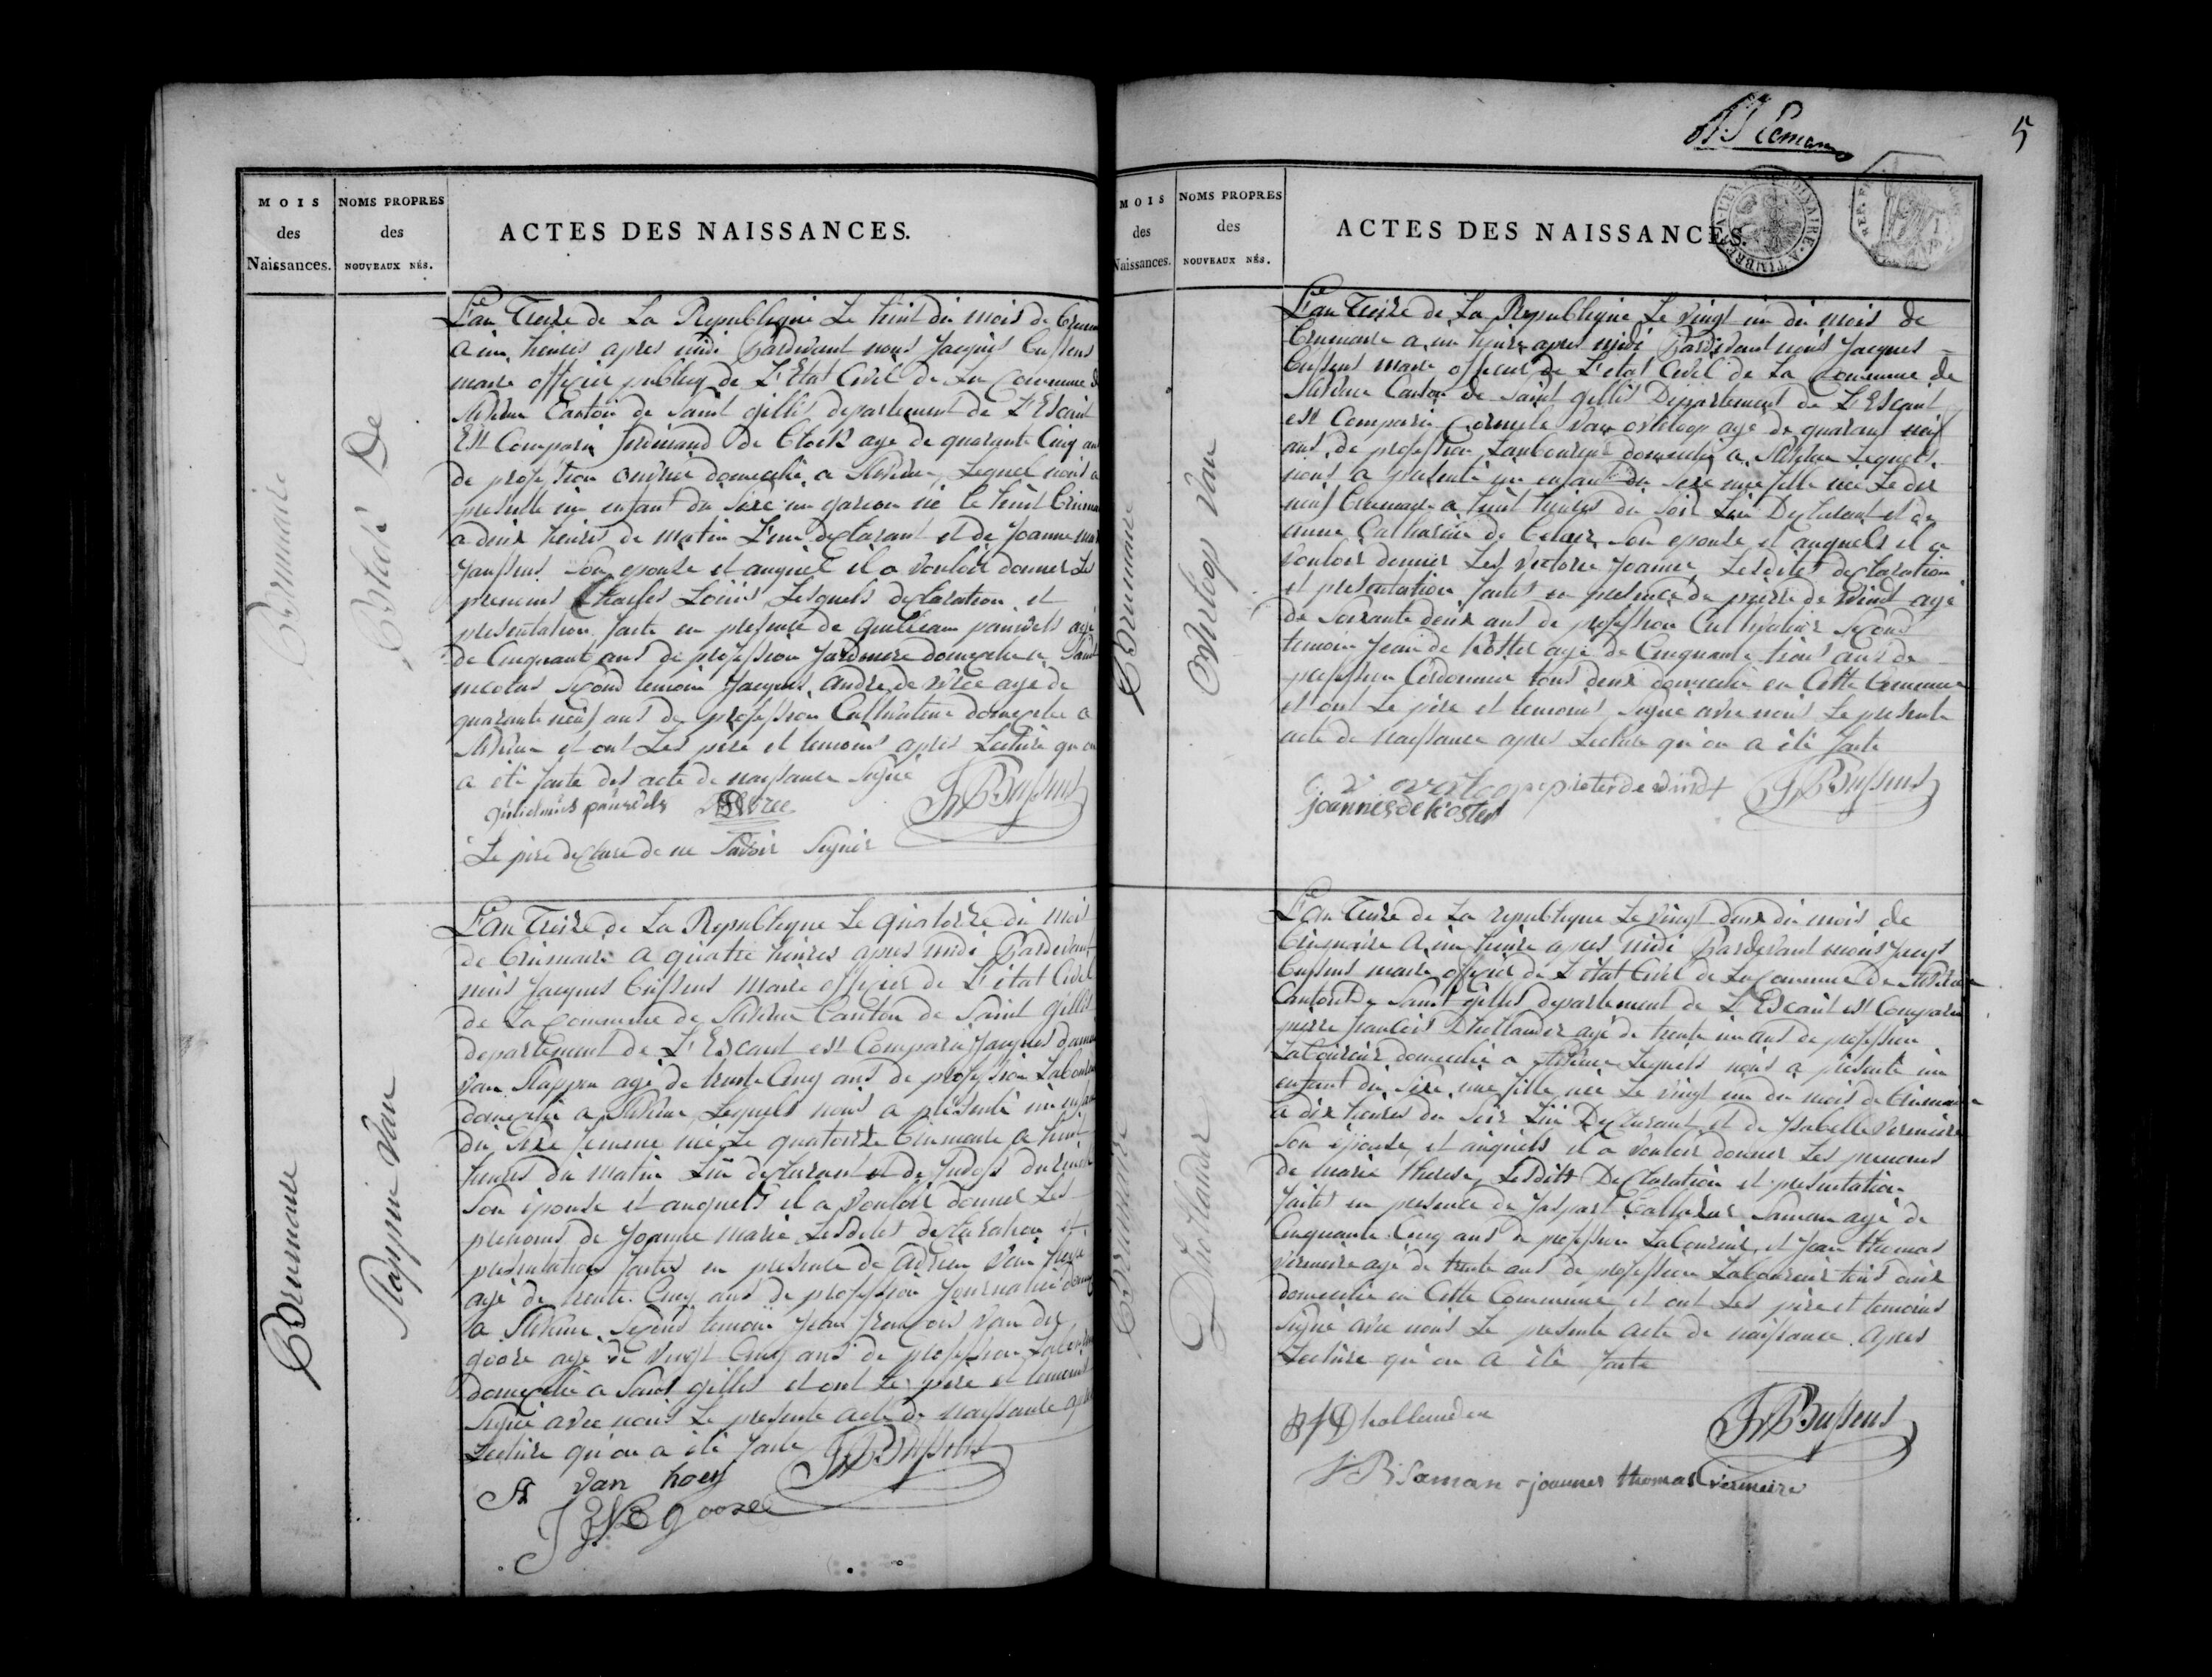 MOIS
des
Naissances.
NOMS PROPRES
des
NOUVEAUX NÉS.
ACTES DES NAISSANCES.
Brumaire
Block De
L'an Treize de La Republique Le huit du mois de Brum
a un heures apres midi Pardevant nous Jacques Bussens
maire officier publicq de L'Etat Civil de La Commune de
Canton de Saint gillis departement de L'Escaut
Est Comparu ferdinand De Block age de quarante Cinq an
de profession ouvrier domecilie a Lequel nous a
presente un enfant du Sexe un garcon né le huit Bruma
a deux heures de matin Lui declarant et de Joanne Mar
Janssens Son epouse et auquel il a Vouloir donner Les
prenoms Charles Louis Lesquels declaration et
presentation faite en presence de guilieam pauwels agé
de Cinquant ans de profession Jardinere domecilie a Saint
nicolas Second temoin Jacques andre de vree age de
quarante neuf ans de profession Cultivateur domecilie a
et ont Les pere et temoins apres Lecture qu'on
a été faite des acte de naissance Signé
guilielmus pauwels DVree JB Bussens
Le pere declare de ne Savoir Signer
Brumaire
Stappen Van
L'an Treize de La Republique Le quatorze du mois
de Brumaire a quatre heures apres midi Pardevant
nous Jacques Bussens Maire officier de L'état Civil
de La Commune de Canton de Saint gillis
departement de L'Escaut est Comparu Jacques
Van Stappen agé de trente Cinq ans de profession Laboureur
domecilie a Lequels nous a présenté un enfan
du Sexe femenne née Le quatorze Brumaire a huit
heures du matin Lui declarant et de
Son épouse et auquels il a Vouloir donner Les
prenoms de Joanne Marie Lesdites declaration et
presentation faites en presence de Adrien Van
agé de trente Cinq ans de profession Journalier
a Second temoin Jean francois Van de
goore age de Vingt Cinq ans de profession
domecilie a Saint gilles et ont Le pere et temoins
Signé avec nous Le presente acte de naissance apres
Lecture qu'on a été faite JB Bussens
Van hoey
goore
5
MOIS
des
Naissances.
NOMS PROPRES
des
NOUVEAUX NÉS.
ACTES DES NAISSANCES.
Brumaire
Overloop Van
L'an Treize de La Republique Le Vingt un du mois de
Brumaire a un heure apres midi Pardevant nous Jacques
Bussens maire officier de L'etat Civil de La Commune de
Canton de Saint gillis Departement de L'Escaut
est Comparu Corneele Van overloop age de quarant neuf
ans de profession Laboureur domecilié a Lequels
nous a presenté un enfant du Sexe une fille née Le dix
neuf Brumaire a huit heures du Soir Lui Declarant et de
anne Catharine de Son epouse et auquels il a
Vouloir donner Les Victorie Joanne Lesdites declaration
et presentation faites en presence de pierre de Windt agé
de Soixante deux ans de profession Cultivateur Second
temoin Jean de koster agé de Cinquante trois ans de
profession Cordonnier tous deux domecilie en Cette Commune
et ont Le père et temoins Signé avec nous Le presente
acte de Naissance apres Lecture qu'on a été faite
C V overloope pieter de windt JB Bussens
joannes de koster
Brumaire
Dhollander
L'an Treize de La republique Le Vingt deux du mois de
Brumaire a un heure apres midi Pardevant nous Jacques
Bussens maire officier de L'état Civil de La Commune de
Canton de Saint gilles departement de L'Escaut est Comparu
pierre francois Dhollander agé de trente un ans de profession
Laboureur domecilie a Lequels nous a présenté un
enfant du Sexe une fille née Le Vingt un du mois de Brumaire
a dix heures du Soir Lui Declarant et de Isabelle Vermeire
Son épouse et auquels il a Vouloir donner Les prenoms
de Marie therese Lesdits Declaration et presentation
faites en presence de Jaspart Saman agé de
Cinquante Cinq ans de profession Laboureur et Jean thomas
Vermeire agé de trente ans de profession Laboureur tous deux
domecilie en Cette Commune et ont Les père et temoins
Signé avec nous Le presente acte de naissance apres
Lecture qu'on a été faite
Dhollander JB Bussens
Saman joannes thomas vermeire